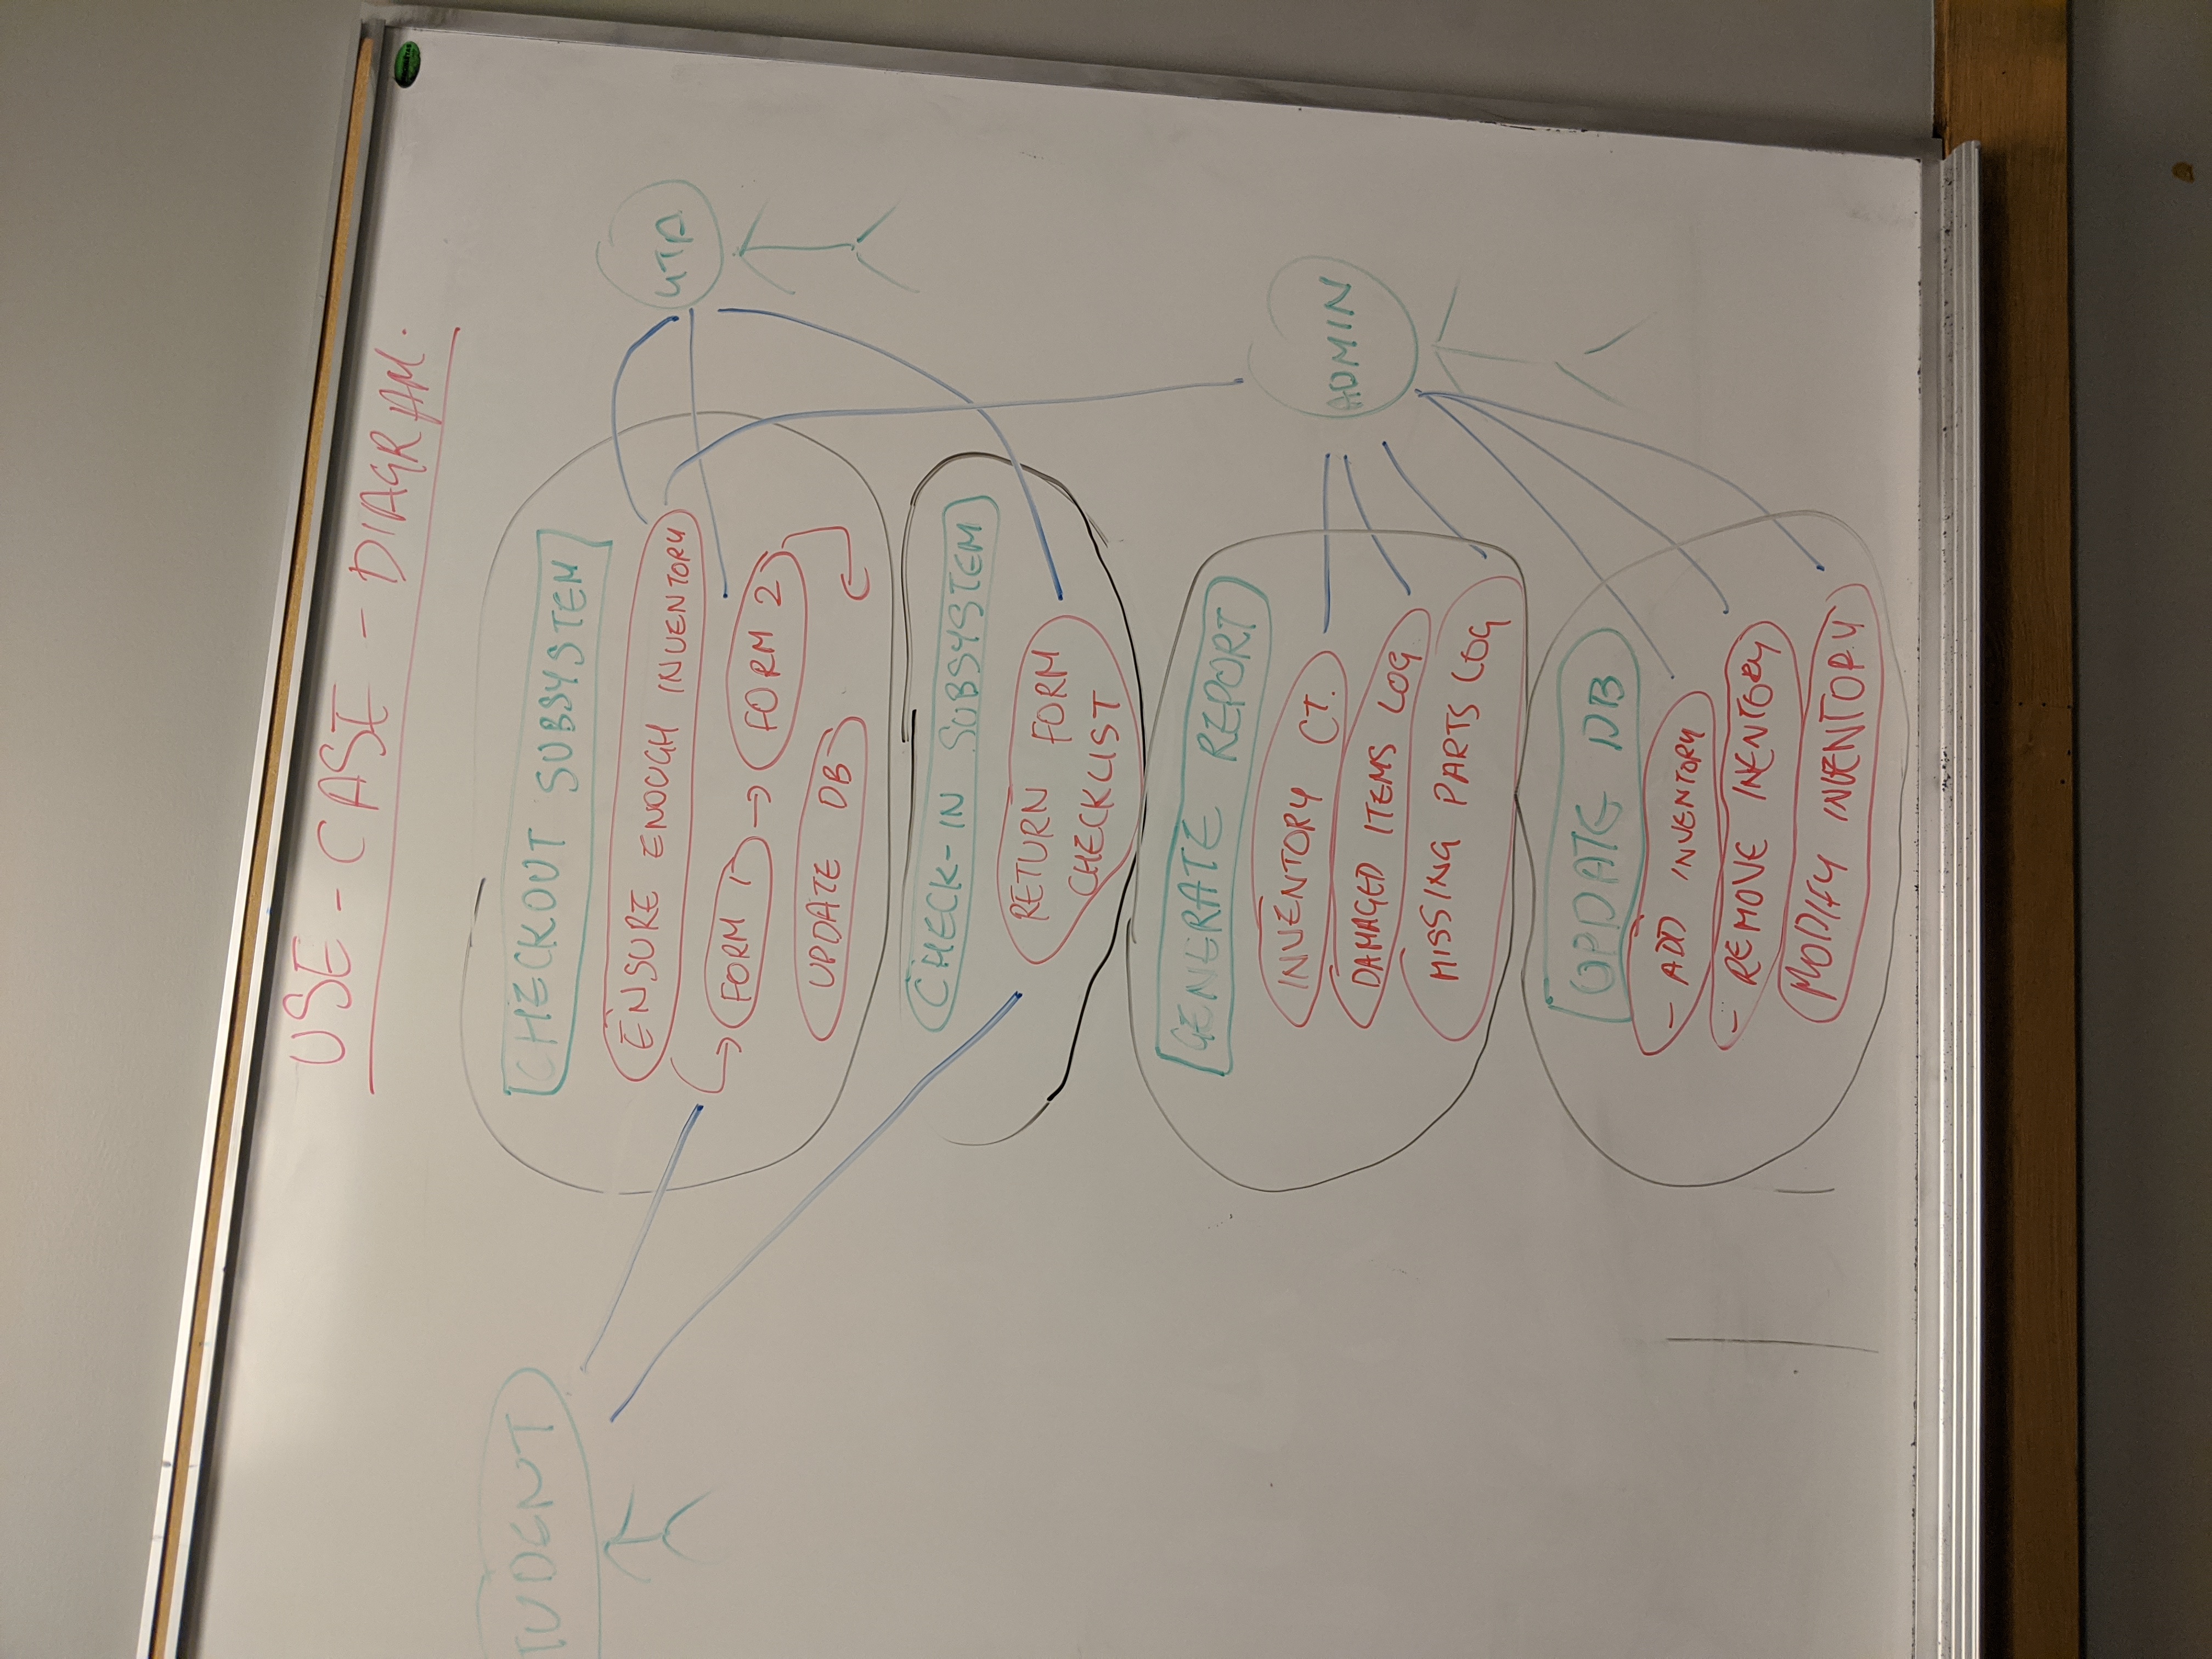 USE - CASE - DIAGRAM.
TUDENT
CHECKOUT SUBSYSTEM
ENSURE ENOUGH INVENTORY
UTA
FORM 1 → FORM 2
UPDATE DB
CHECK-IN SUBSYSTEM
RETURN FORM
CHECKLIST
GENERATE REPORT
INVENTORY CT.
ADMIN
DAMAGED ITEMS LOG
MISSING PARTS LOG
UPDATE DB
- ADD INVENTORY
- REMOVE INENTORY
MODIFY INVENTORY